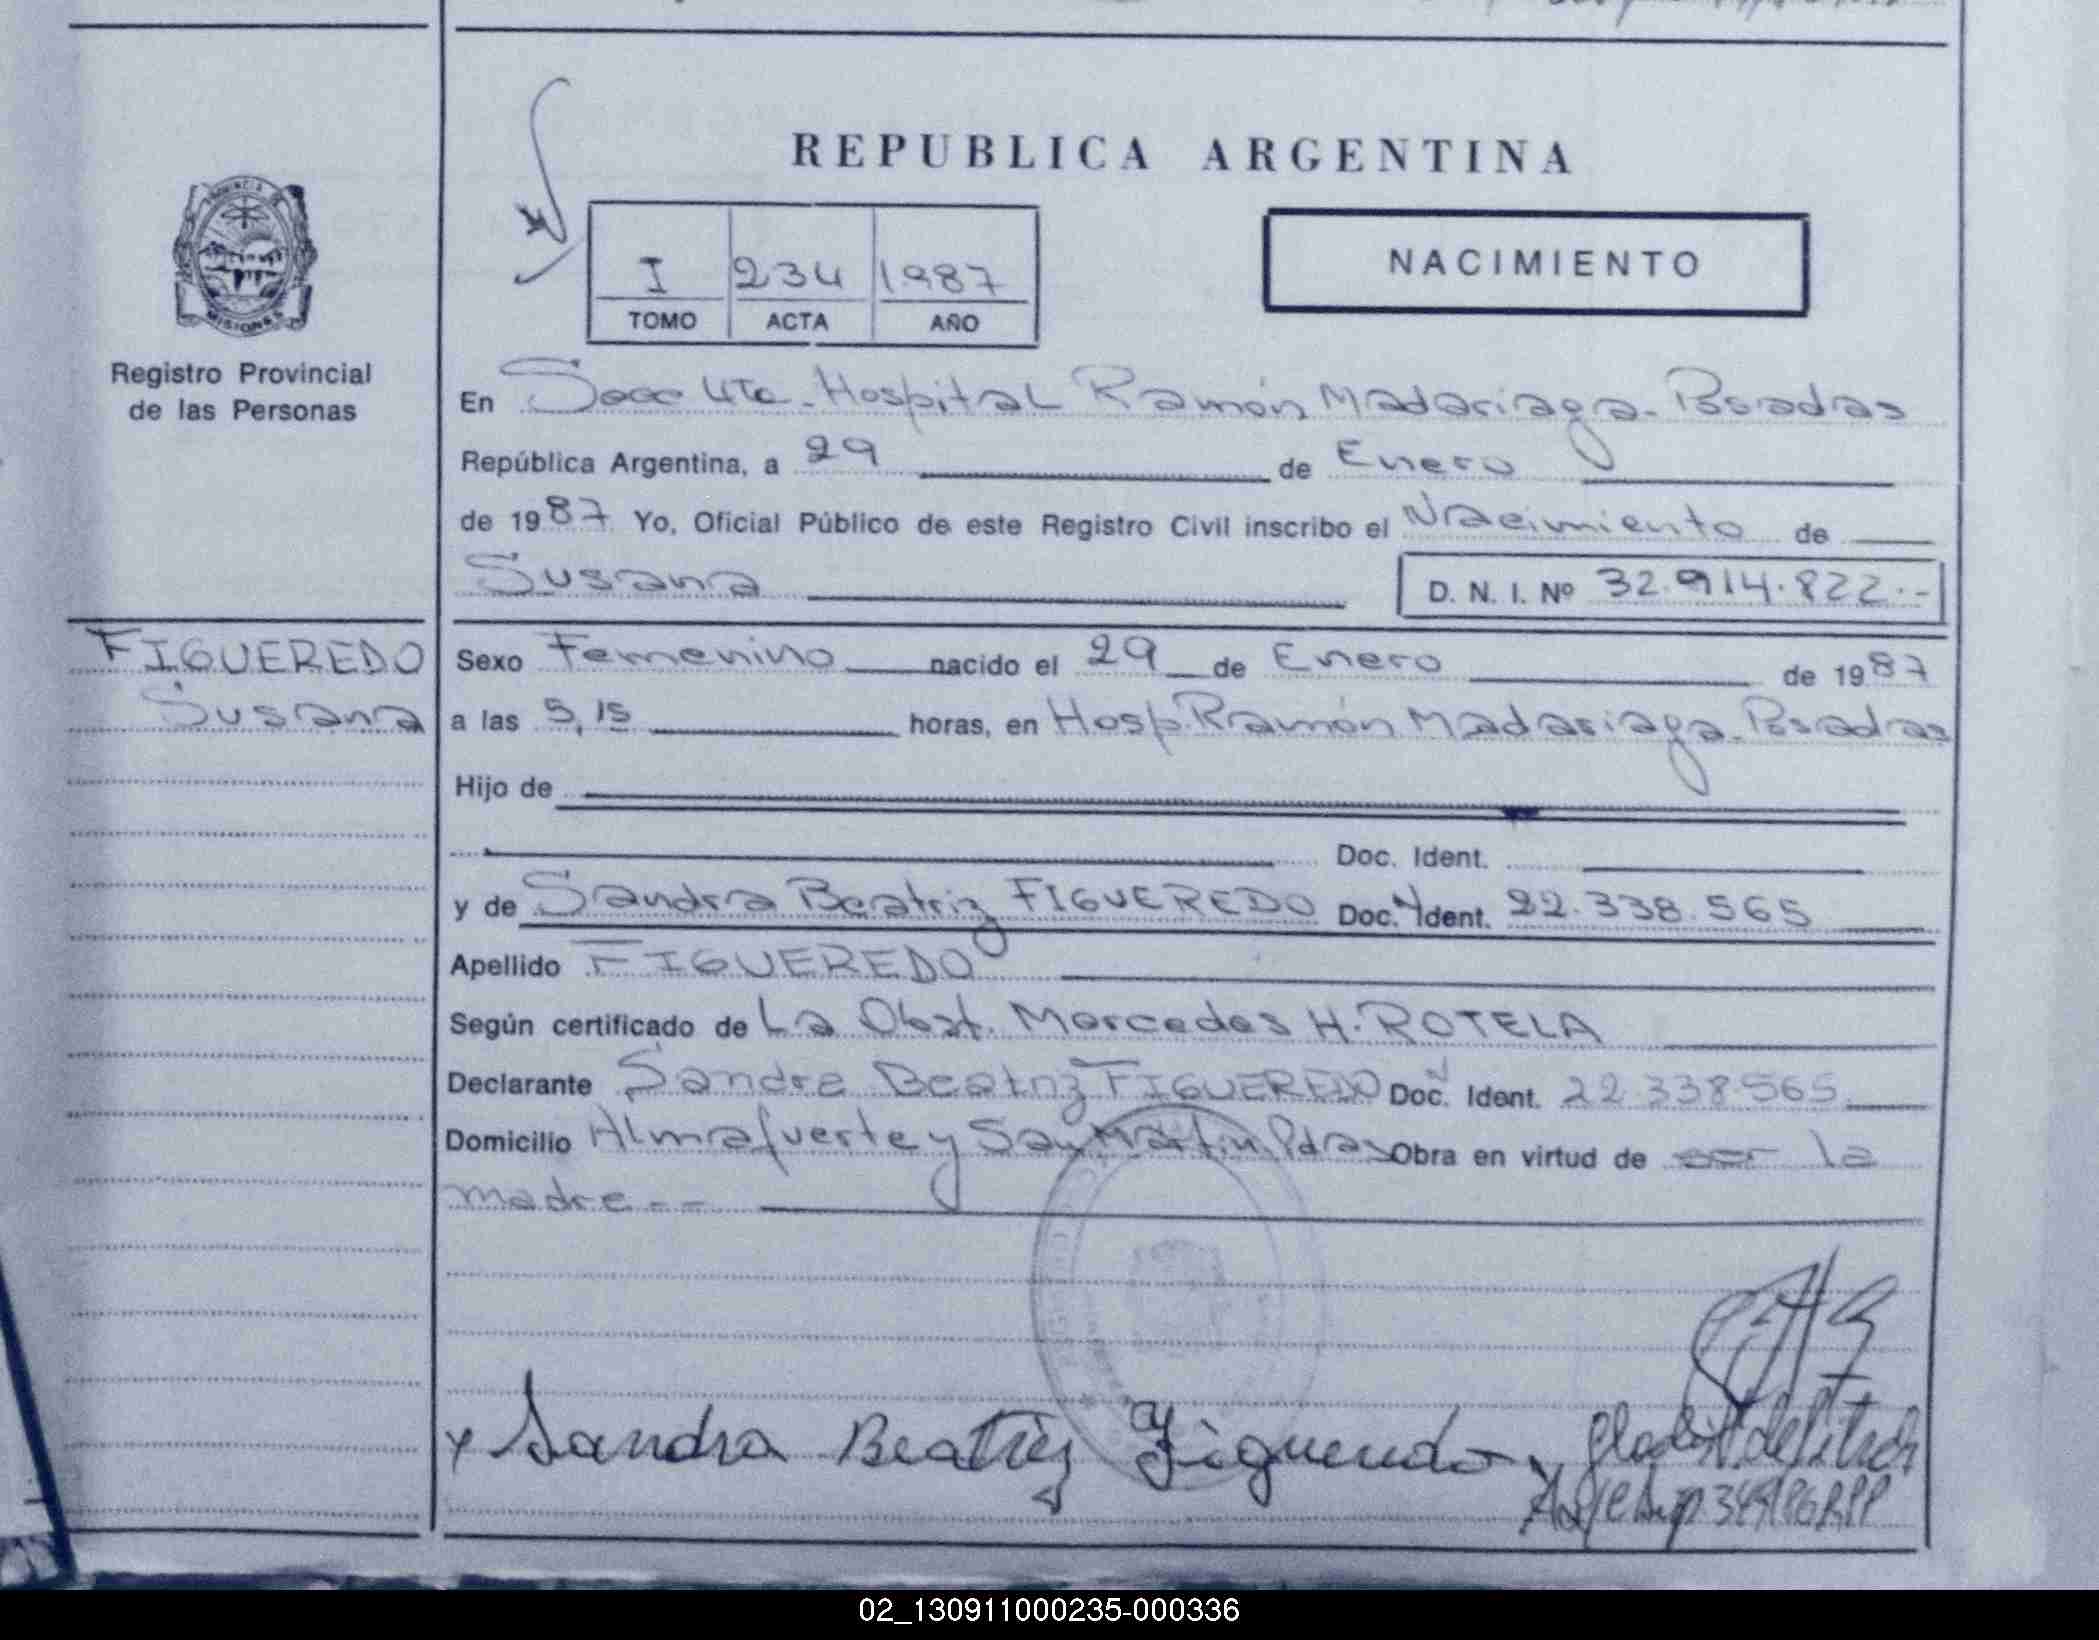 REPUBLICA ARGENTINA
PROVINCIA DE
MISIONES
Registro Provincial
de las Personas
I 234 1987
TOMO ACTA AÑO
NACIMIENTO
En Secc 4ta - Hospital Ramón Madariaga - Posadas
República Argentina, a 29 de Enero
de 1987 Yo, Oficial Público de este Registro Civil inscribo el Nacimiento de
Susana D. N. I. Nº 32.914.822.-
FIGUEREDO
Susana
Sexo Femenino nacido el 29 de Enero de 1987
a las 5,15 horas, en Hosp. Ramón Madariaga - Posadas
Hijo de
Doc. Ident.
y de Sandra Beatriz FIGUEREDO Doc. Ident. 22.338.565
Apellido FIGUEREDO
Según certificado de La Obst. Mercedes H. ROTELA
Declarante Sandra Beatriz FIGUEREDO Doc. Ident. 22.338.565
Domicilio Almafuerte y San Martin Pdas Obra en virtud de ser la
madre --
Sandra Beatriz Figueredo
02_130911000235-000336